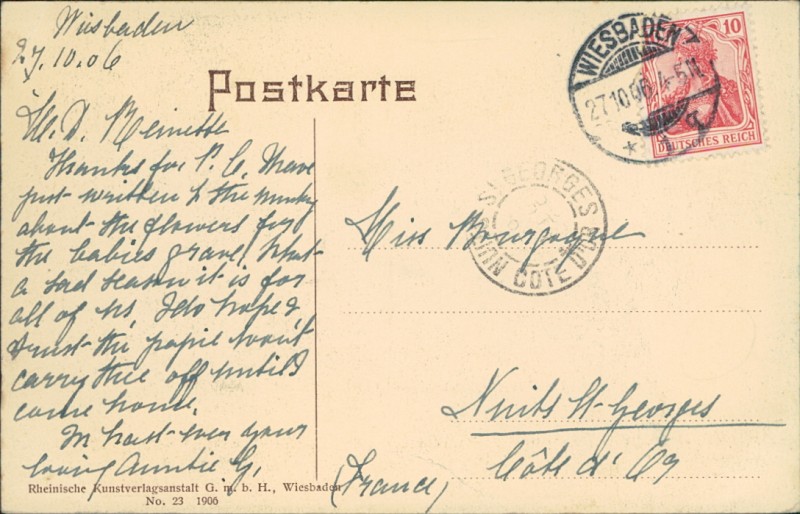 Wiesbaden
27.10.06
Postkarte
M. D. Reinette
Thanks for P. C. I have
just written to the
about the flowers for
the babies grave. What
a sad season it is for
all of us, I do hope &
trust the papie won't
carry thee off until I
come home.
In hast ever your
loving Auntie G.
Rheinische Kunstverlagsanstalt G. m. b. H., Wiesbaden
No. 23 1906
WIESBADEN
27.10.06 4-5N.
10
DEUTSCHES REICH
ST GEORGES
NUITS CÔTE D'OR
Miss Bourgogne
Nuits St Georges
Côte d'Or
(France)